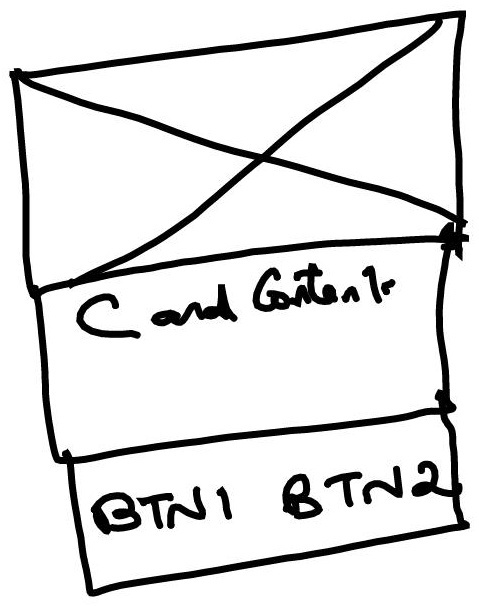 Card Content
BTN1 BTN2